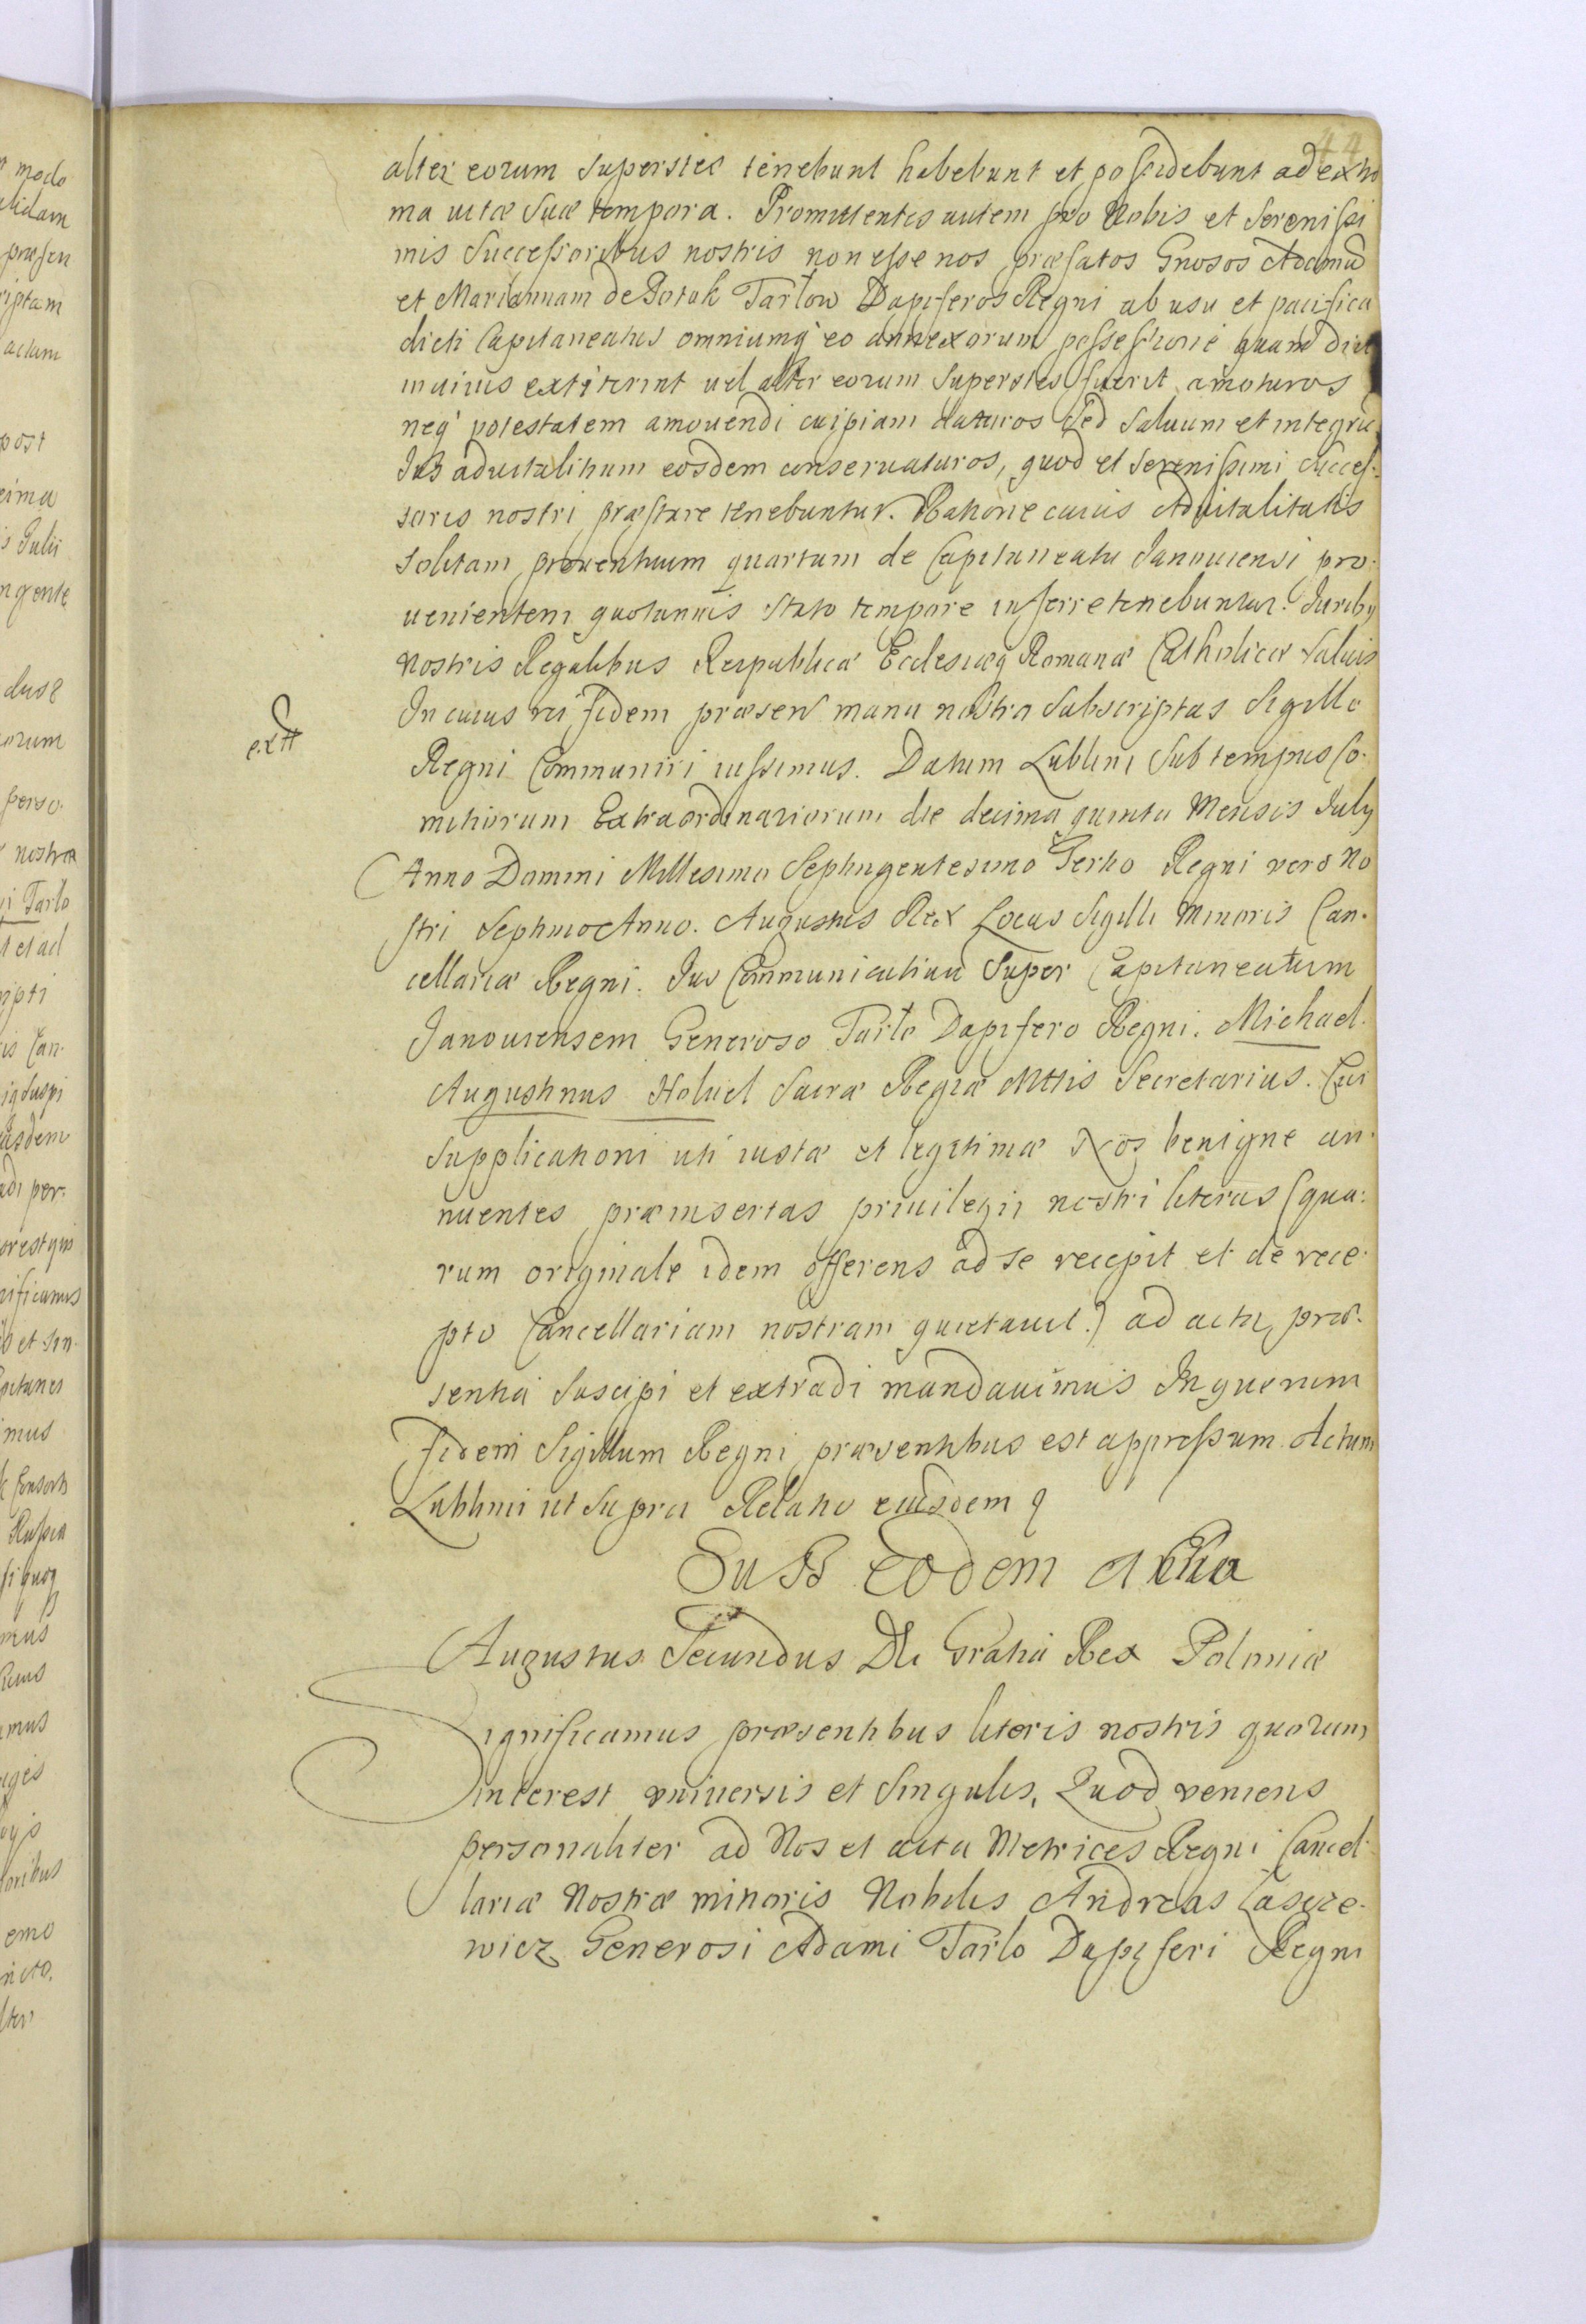 44
alter eorum superstes tenebunt habebunt et possidebunt ad extre
ma vitæ suæ tempora. Promittentes autem pro Nobis et Serenissi
mis Successoribus nostris non esse nos præfatos Gnosos Adamũ
et Mariannam de Potok Tarłow Dapiferos Regni ab usu et pacifica
dicti Capitaneatus omniumq eo annexorum possessione quam diu
in vivis extiterint vel alter eorum superstes fuerit amoturos
neq potestatem amovendi cuipiam daturos sed salvum et integrũ
Jus advitalitium eosdem conservaturos, quod et Serenissimi Succes-
sores nostri præstare tenebuntur. Ratione cuius Advitalitatis
solitam proventuum quartam de Capitaneatu Janoviensi pro-
venientem quotannis stato tempore inferre tenebuntur. Juribꝫ
nostris Regalibus Reipublicæ Ecclesiæq Romanæ Catholicæ salvis
In cuius rei fidem præsen manu nostra subscriptas Sigillo
Regni Communiri iussimus. Datum Lublini sub tempus Co-
mitiorum Extraordinariorum die decima quinta Mensis July
Anno Domini Millesimo Septingentesimo Tertio Regni vero No
stri Septimo Anno. Augustus Rex Locus Sigilli Minoris Can-
cellariæ Regni. Jus Communicativũ super Capitaneatum
Janoviensem Generoso Tarło Dapifero Regni. Michael
Augustinus Holuel Sacræ Regiæ Mttis Secretarius. Cui
supplicationi uti iustæ et legitimæ Nos benigne an-
nuentes præinsertas privilegii nostri literas (qua-
rum originale idem offerens ad se recepit et de rece-
pto Cancellariam nostram quietavit.) ad acta præ-
sentia suscipi et extradi mandavimus In quorum
fidem Sigillum Regni præsentibus est appressum. Actum
Lublini ut supra Relatio eiusdem q
extt
Sub eodem Actu
Augustus Secundus Dei Gratia Rex Poloniæ
Significamus præsentibus literis nostris quorum
interest universis et singulis, Quod veniens
personaliter ad Nos et acta Metrices Regni Cancel-
lariæ Nostræ minoris Nobilis Andreas Casyre-
wicz Generosi Adami Tarło Dapiferi Regni